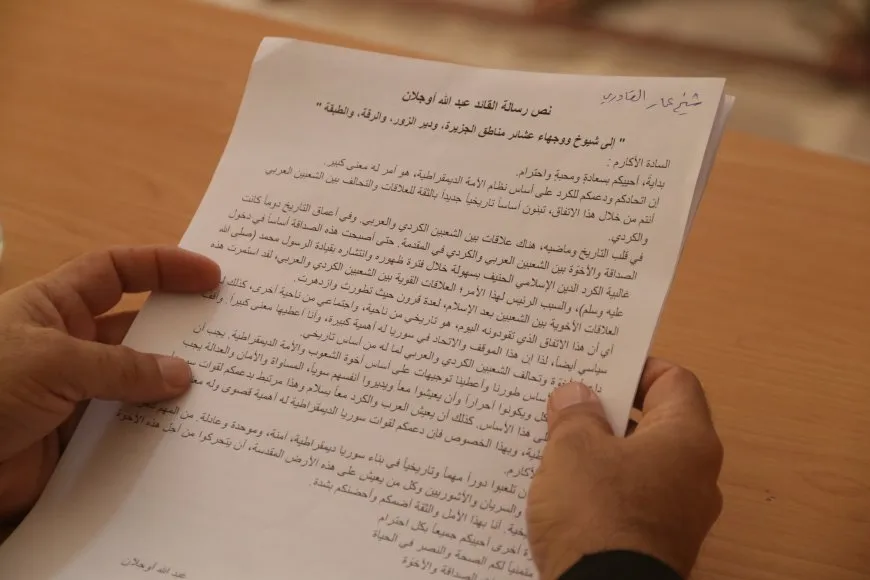 شيخ عمار القادري
نص رسالة القائد عبد الله أوجلان
" إلى شيوخ ووجهاء عشائر مناطق الجزيرة، ودير الزور، والرقة، والطبقة "
السادة الأكارم :
بدايةً، أحييكم بسعادةٍ ومحبةٍ واحترام.
إن اتحادكم ودعمكم للكرد على أساس نظام الأمة الديمقراطية، هو أمر له معنى كبير.
أنتم من خلال هذا الاتفاق، تبنون أساساً تاريخياً جديداً بالثقة للعلاقات والتحالف بين الشعبين العربي
والكردي.
في قلب التاريخ وماضيه، هناك علاقات بين الشعبين الكردي والعربي. وفي أعماق التاريخ دوماً كانت
الصداقة والأخوّة بين الشعبين العربي والكردي في المقدمة. حتى أصبحت هذه الصداقة أساساً في دخول
غالبية الكرد الدين الإسلامي الحنيف بسهولة خلال فترة ظهوره وانتشاره بقيادة الرسول محمد (صلى الله
عليه وسلم)، والسبب الرئيس لهذا الأمر؛ العلاقات القوية بين الشعبين الكردي والعربي، لقد استمرت هذه
العلاقات الأخوية بين الشعبين بعد الإسلام، لعدة قرون حيث تطورت وازدهرت.
أي أن هذا الاتفاق الذي تقودونه اليوم، هو تاريخي من ناحية، واجتماعي من ناحية أخرى، كذلك
سياسي أيضاً، لذا إن هذا الموقف والاتحاد في سوريا له أهمية كبيرة، وأنا أعطيها معنى كبيراً.
وتحالف الشعبين الكردي والعربي لما له من أساس تاريخي.
أساس طورنا وأعطينا توجيهات على أساس أخوة الشعوب والأمة الديمقراطية. يجب أن
ويكونوا أحراراً وأن يعيشوا معاً ويديروا أنفسهم سوياً، المساواة والأمان والعدالة يجب
على هذا الأساس. كذلك أن يعيش العرب والكرد معاً بسلام وهذا مرتبط بدعمكم لقوات
وبهذا الخصوص فإن دعمكم لقوات سوريا الديمقراطية له أهمية قصوى وله
الأكارم.
أن تلعبوا دوراً مهماً وتاريخياً في بناء سوريا ديمقراطية، آمنة، وموحدة وعادلة. من المهم
والسريان والآشوريين وكل من يعيش على هذه الأرض المقدسة، أن يتحركوا من أجل هذه الأخوة
أنا بهذا الأمل والثقة أضمكم وأحضنكم بشدة.
أخرى أحييكم جميعاً بكل احترام
متمنياً لكم الصحة والنصر في الحياة
الصداقة والأخوة
عبد الله أوجلان